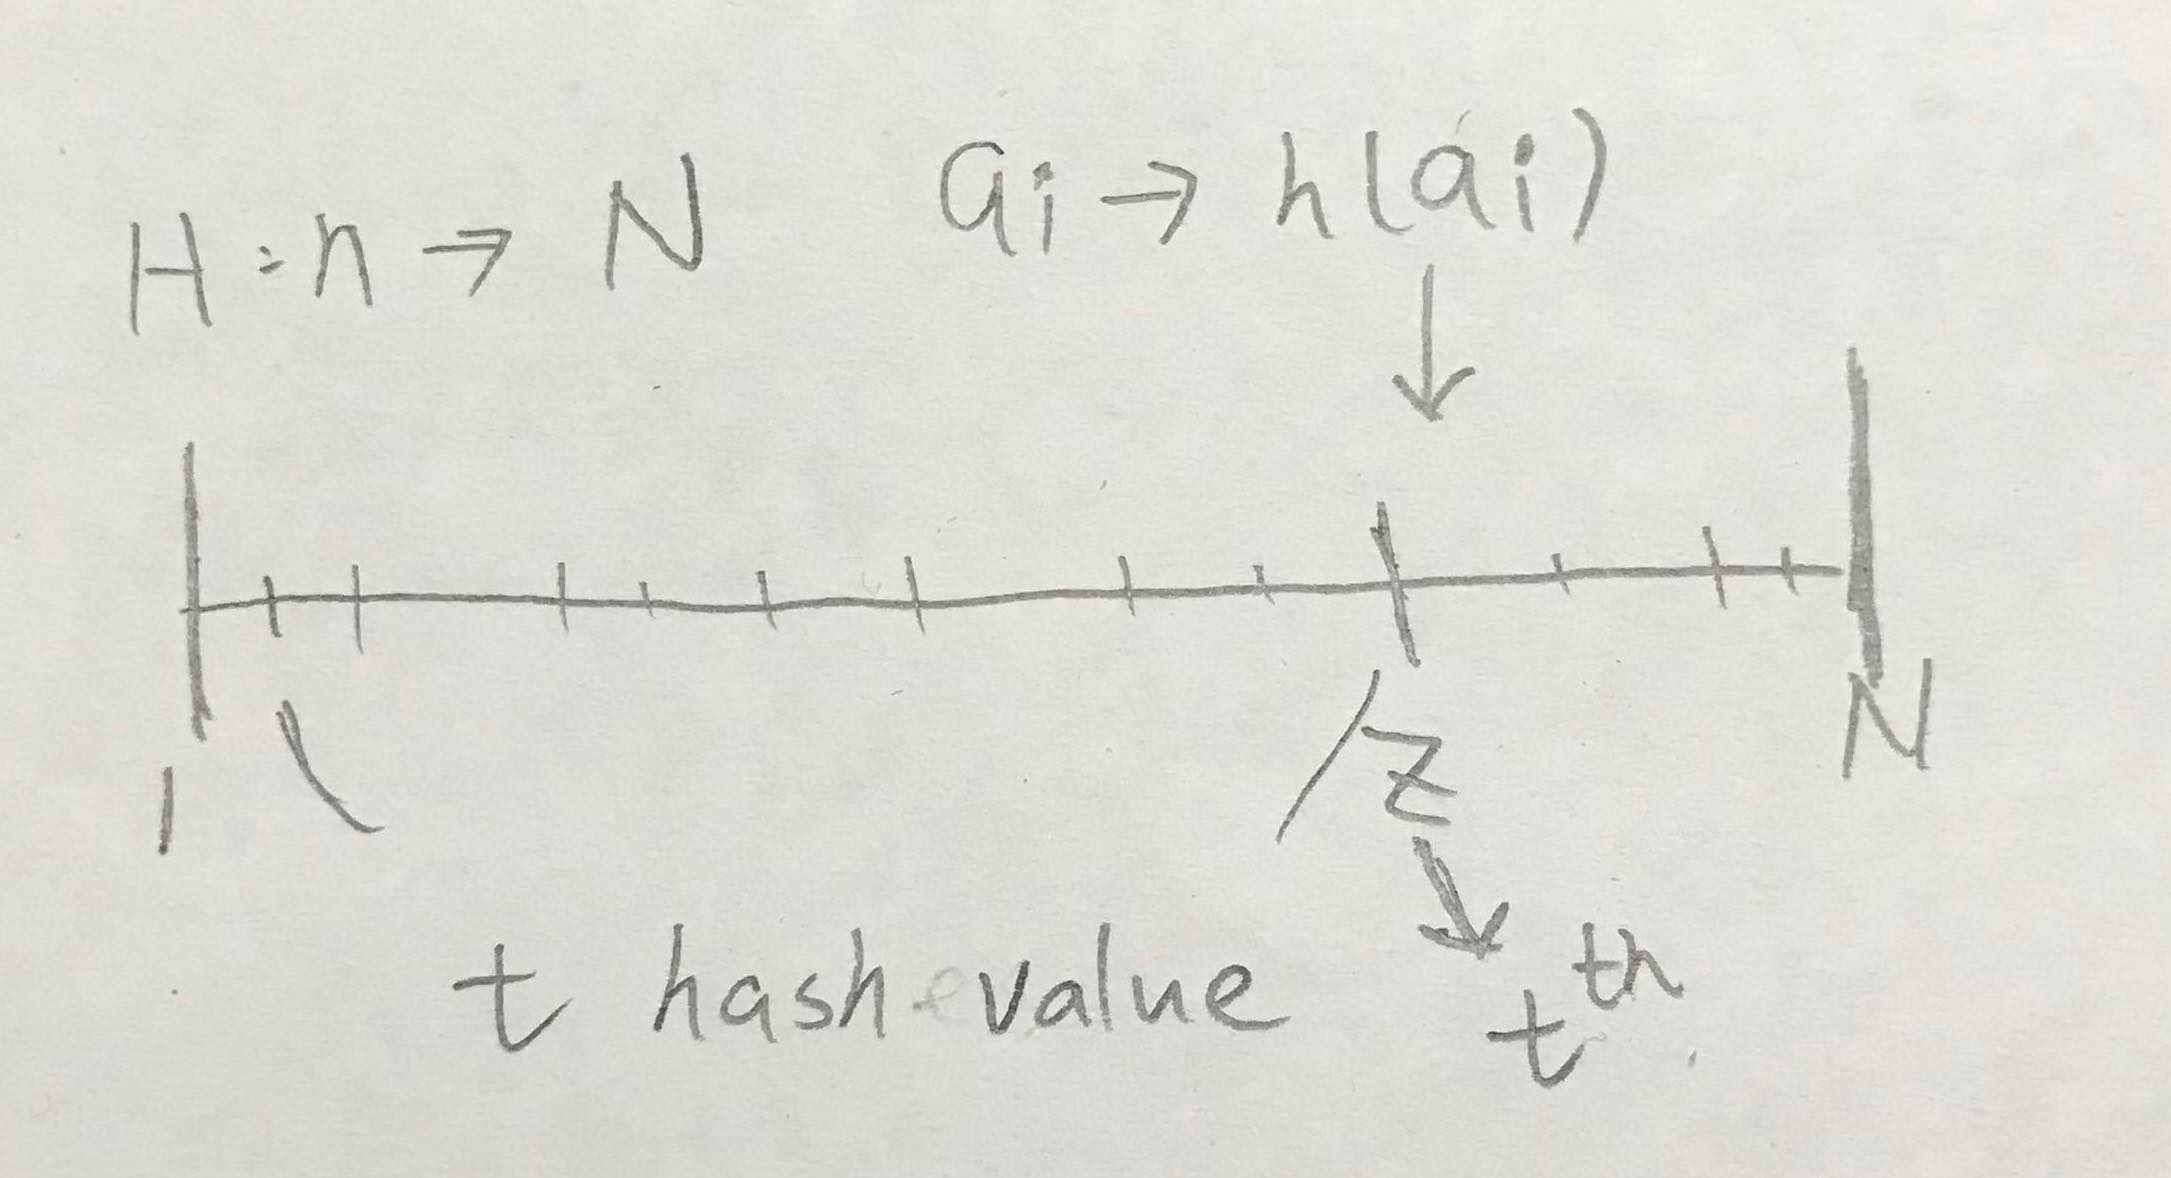 H : n → N
ai → h(ai)
↓
1
z
N
t hash value
tth